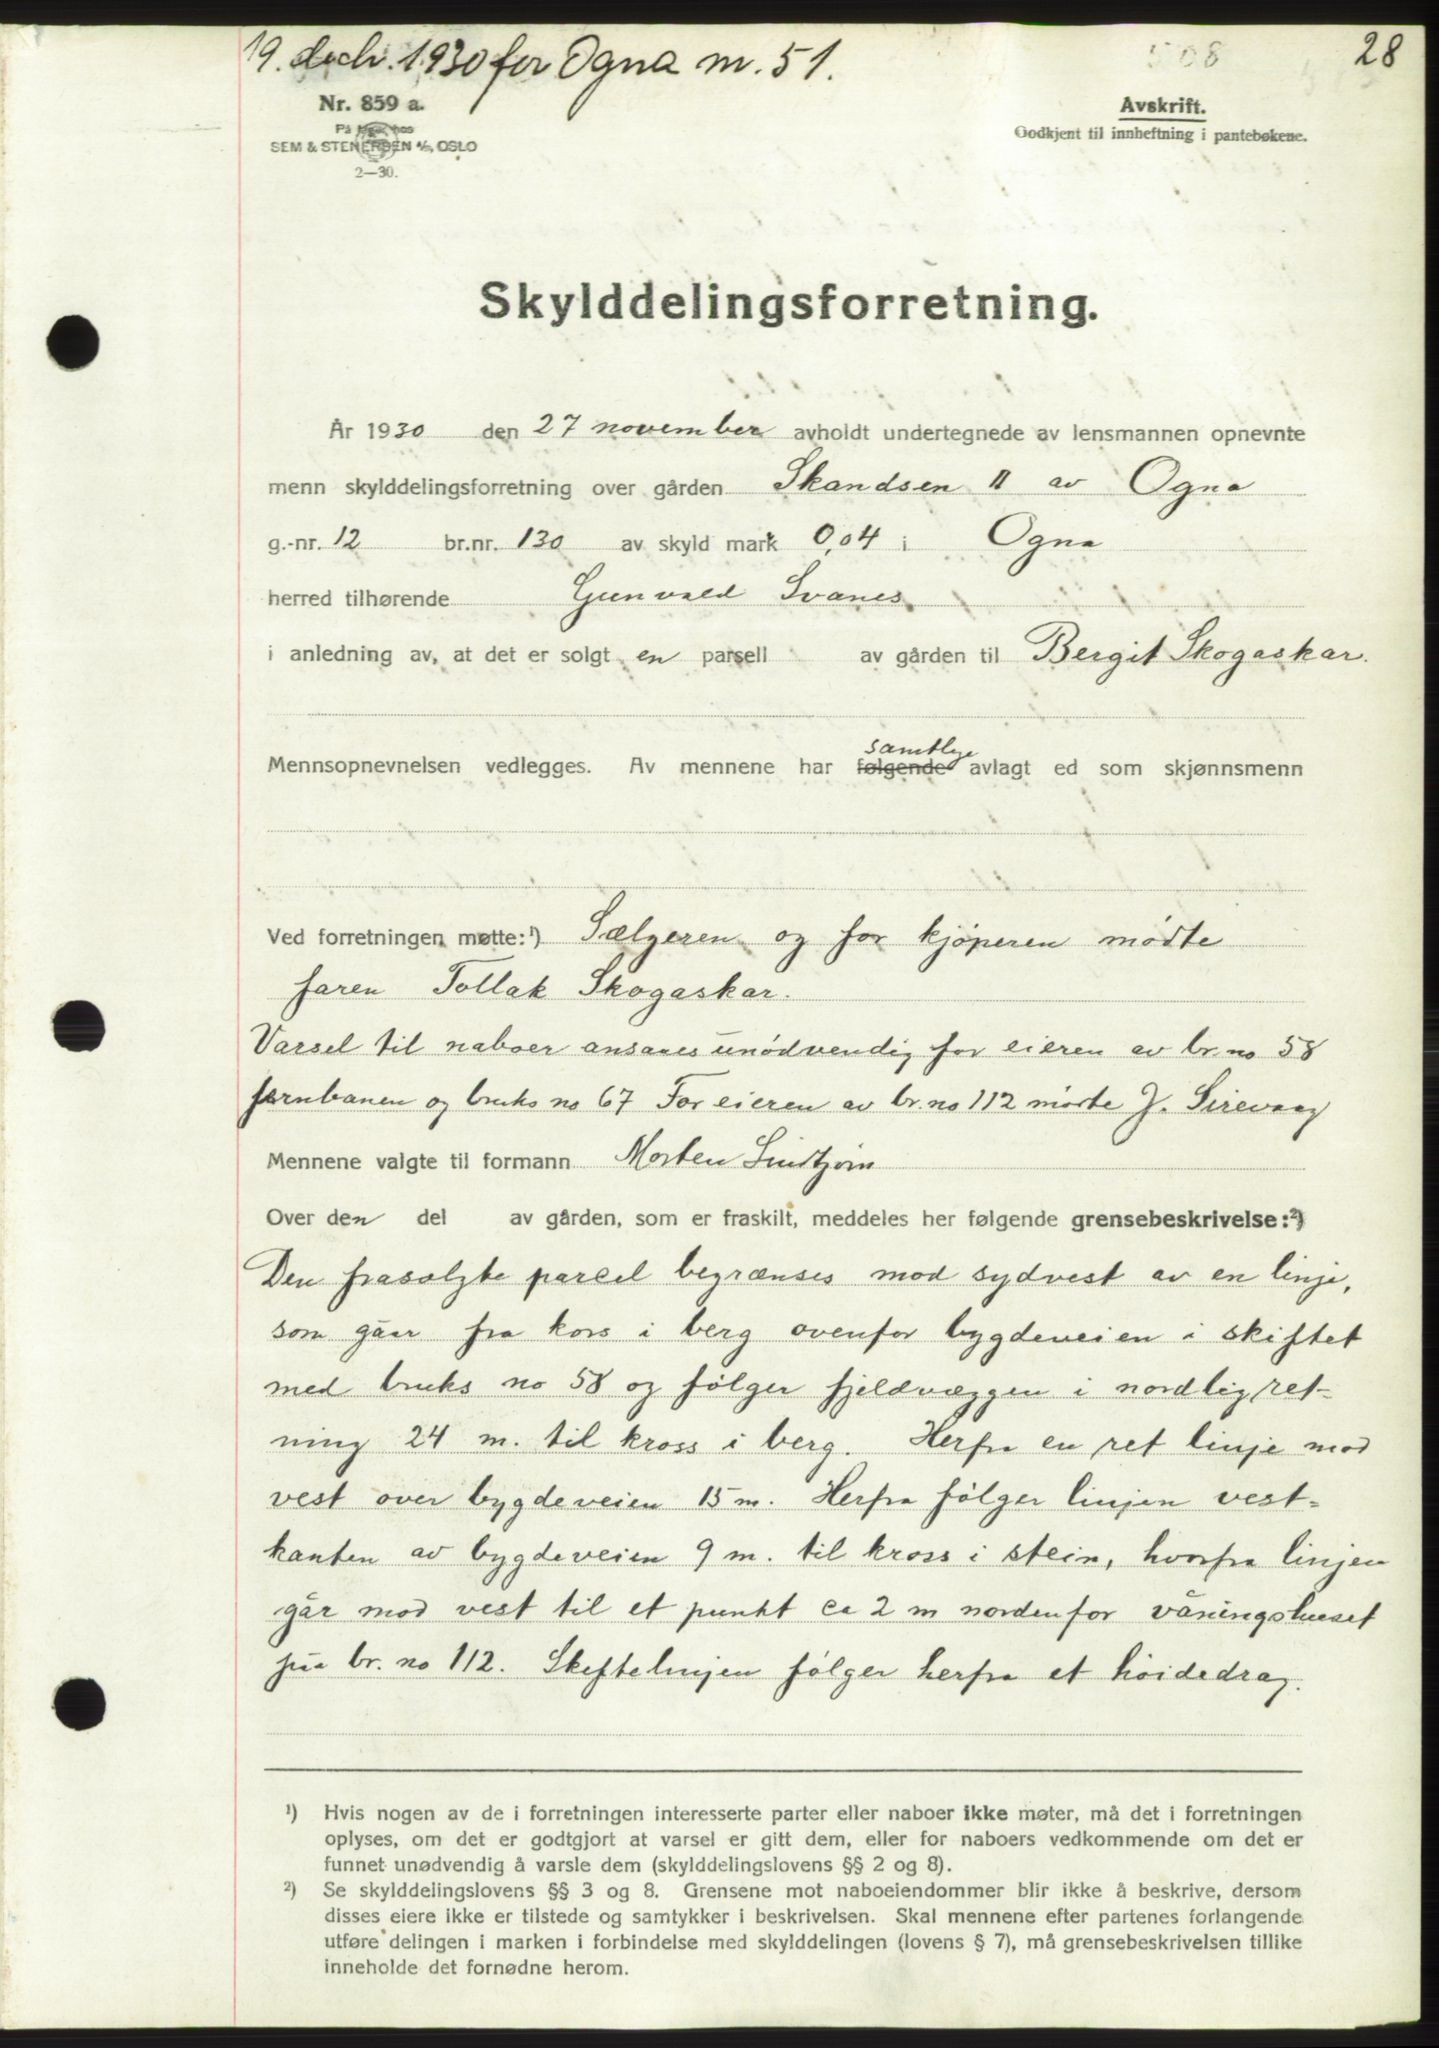 19. decbr. 1930 for Ogna nr. 51.
508
28
Nr. 859 a.
På lager hos
SEM & STENERSEN A/S, OSLO
2—30.
Avskrift.
Godkjent til innheftning i pantebøkene.
Skylddelingsforretning.
År 1930 den 27 november avholdt undertegnede av lensmannen opnevnte
menn skylddelingsforretning over gården Skandsen II av Ogna
g.-nr. 12 br.nr. 130 av skyld mark 0,04 i Ogna
herred tilhørende Gunvald Svanes
i anledning av, at det er solgt en parsell av gården til Bergit Skogaskar.
samtlige
Mennsopnevnelsen vedlegges. Av mennene har følgende avlagt ed som skjønnsmenn
Ved forretningen møtte:¹) Sælgeren og for kjøperen mødte
faren Tollak Skogaskar.
Varsel til naboer ansaaes unødvendig for eieren av br. no 58
jernbanen og bruks no 67 For eieren av br. no 112 møtte J. Sirevaag
Mennene valgte til formann Morten Lindtjørn
Over den del av gården, som er fraskilt, meddeles her følgende grensebeskrivelse:²)
Den frasolgte parcel begrænses mod sydvest av en linje,
som gaar fra kors i berg ovenfor bygdeveien i skiftet
med bruks no 58 og følger fjeldvæggen i nordlig ret-
ning 24 m. til kross i berg. Herfra en ret linje mod
vest over bygdeveien 15 m. Herfra følger linjen vest-
kanten av bygdeveien 9 m. til kross i stein, hvorfra linjen
går mod vest til et punkt ca 2 m nordenfor våningshuset
paa br. no 112. Skiftelinjen følger herfra et høidedrag.
¹) Hvis nogen av de i forretningen interesserte parter eller naboer ikke møter, må det i forretningen
oplyses, om det er godtgjort at varsel er gitt dem, eller for naboers vedkommende om det er
funnet unødvendig å varsle dem (skylddelingslovens §§ 2 og 8).
²) Se skylddelingslovens §§ 3 og 8. Grensene mot naboeiendommer blir ikke å beskrive, dersom
disses eiere ikke er tilstede og samtykker i beskrivelsen. Skal mennene efter partenes forlangende
utføre delingen i marken i forbindelse med skylddelingen (lovens § 7), må grensebeskrivelsen tillike
inneholde det fornødne herom.